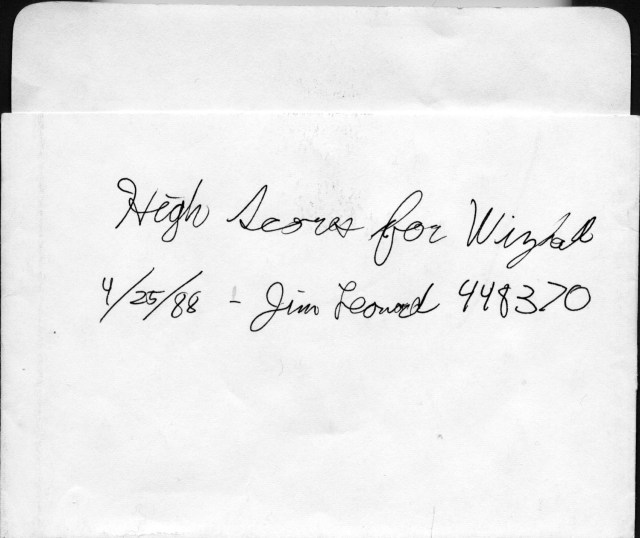 High Scores for Wizball
4/25/88 - Jim Leonard 448370